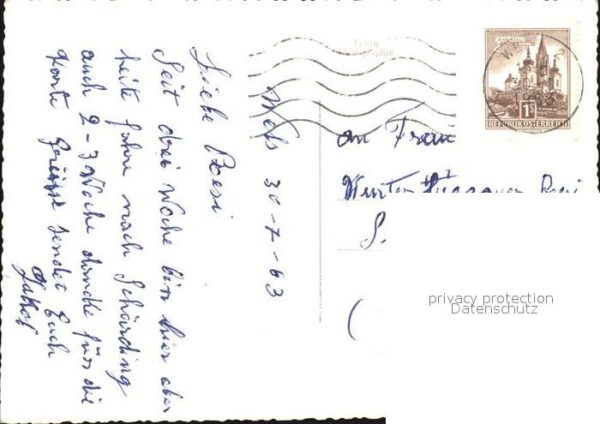 Wels 30-7-63
Liebe Resi
Seit drei Woche bin hier aber
heite fahre nach Schärding
auch 2-3 Woche danke für die
Karte Grüsse sendet Euch
an Frau
Resi
S.
(
1S
REPUBLIK ÖSTERREICH
privacy protection
Datenschutz